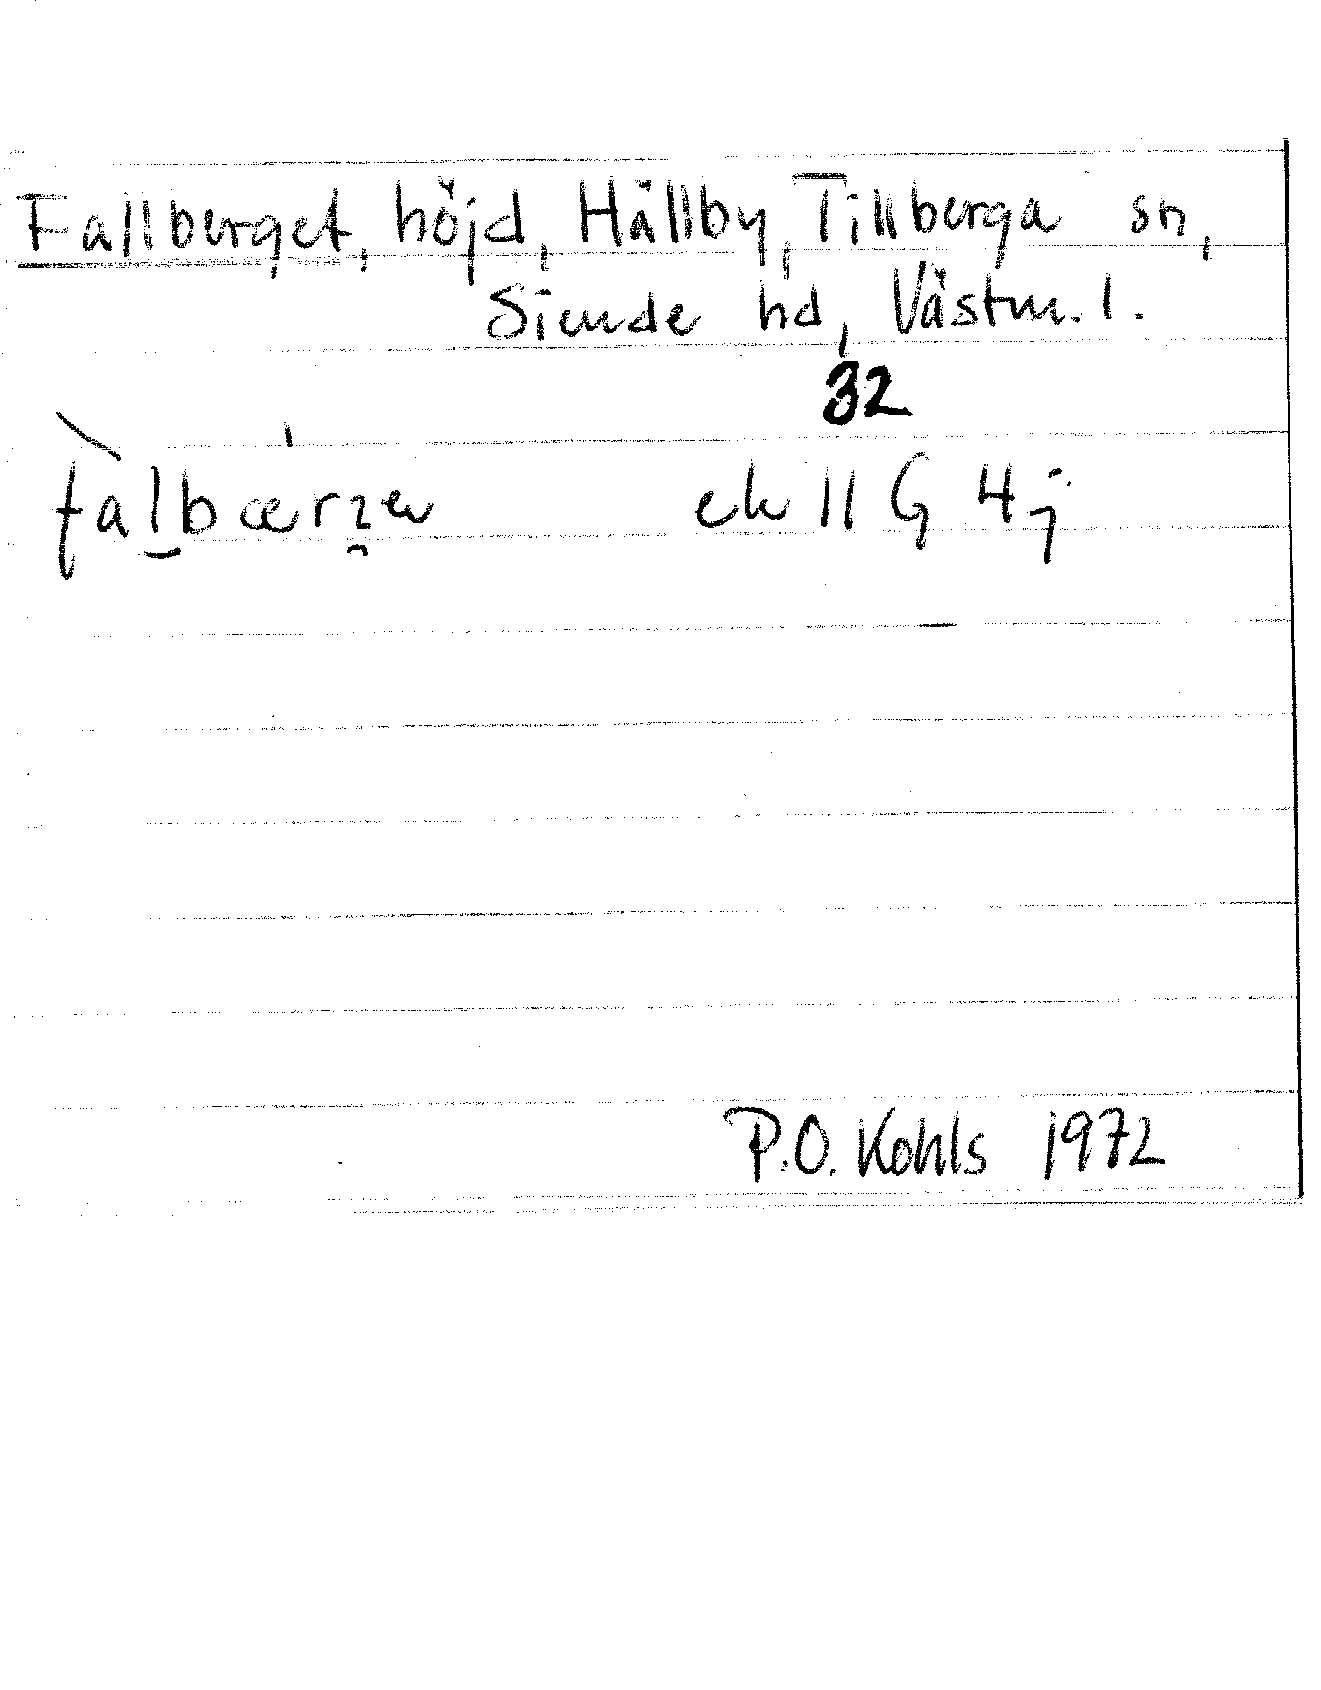 Fallberget, höjd, Hållby, Tillberga sn,
Siende hd, Västm. l.
32
ek 11 G 4 j
P.O. Kohls 1972